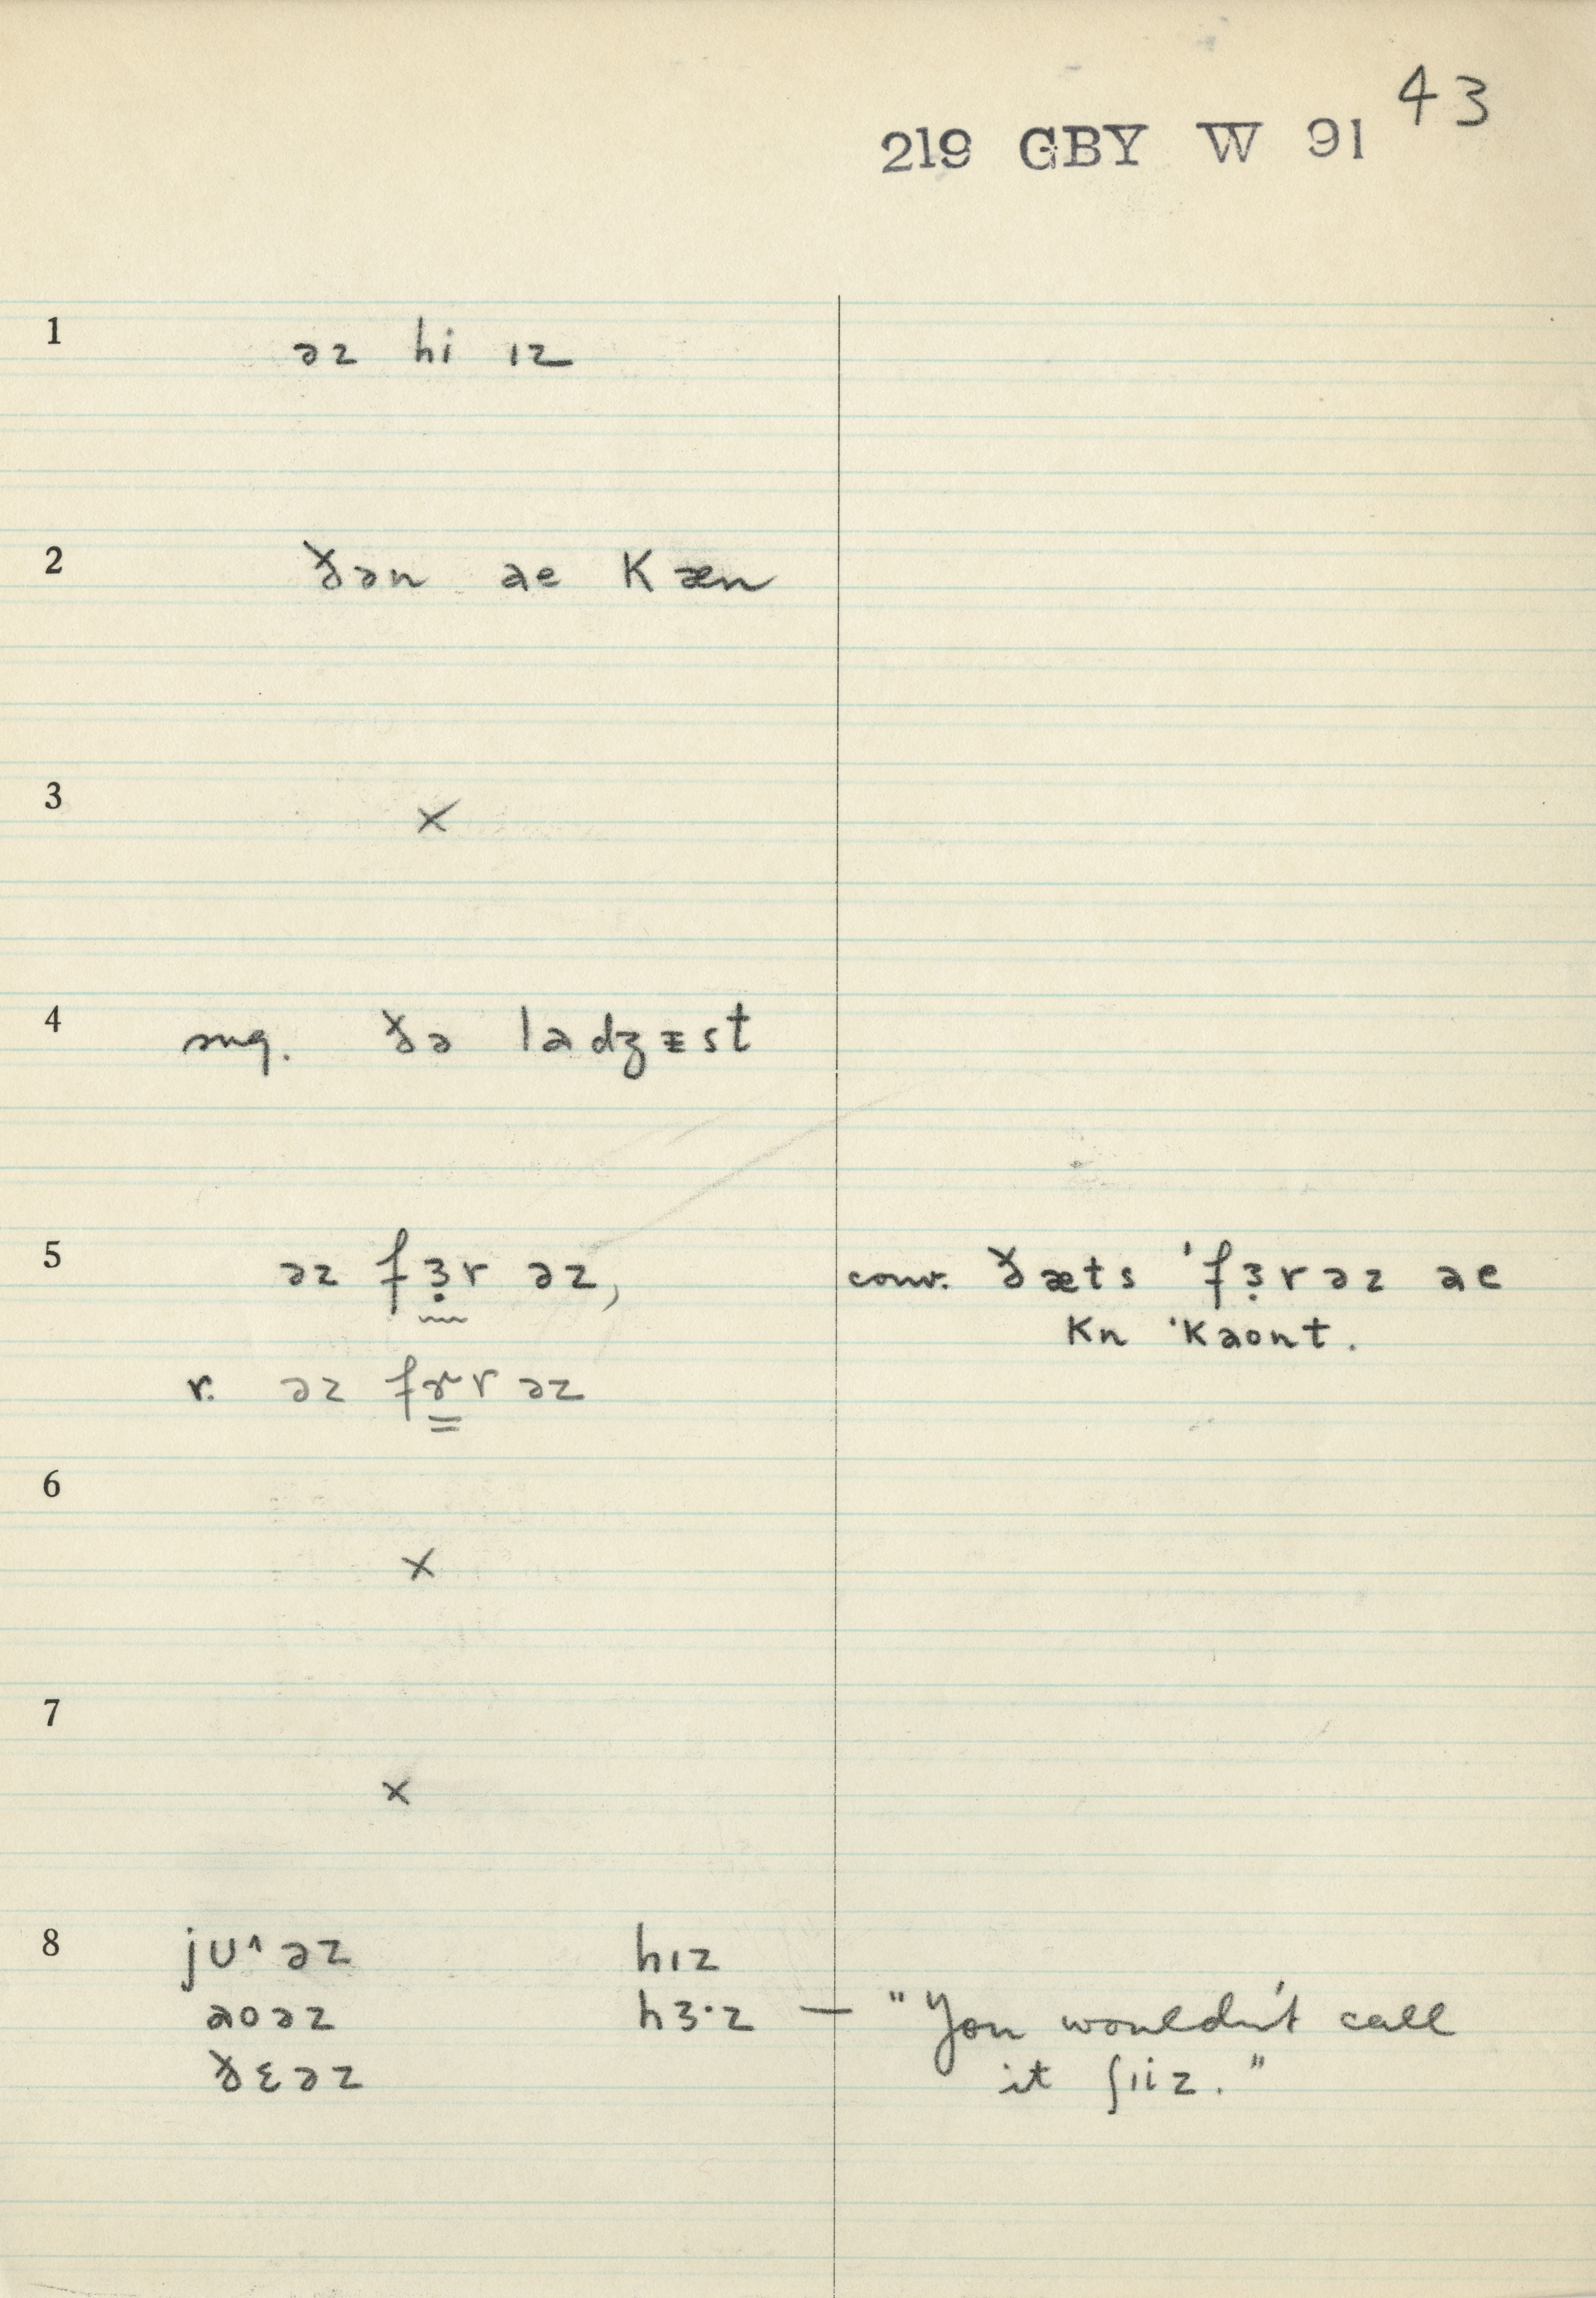 43
219 GBY W 91
1 əz hi ɪz
2 ðən ae kæn
3 ×
4 sug. ðə ladʒᵻst
5 əz fɜ̣r əz, conv. ðæts 'fɜ̣rəz ae
kn 'kaont.
r. əz fɚr əz
6 ×
7 ×
8 jʊ^əz hɪz
aoəz hɜ·z — "You wouldn't call
ðɛəz it ʃɪiz."